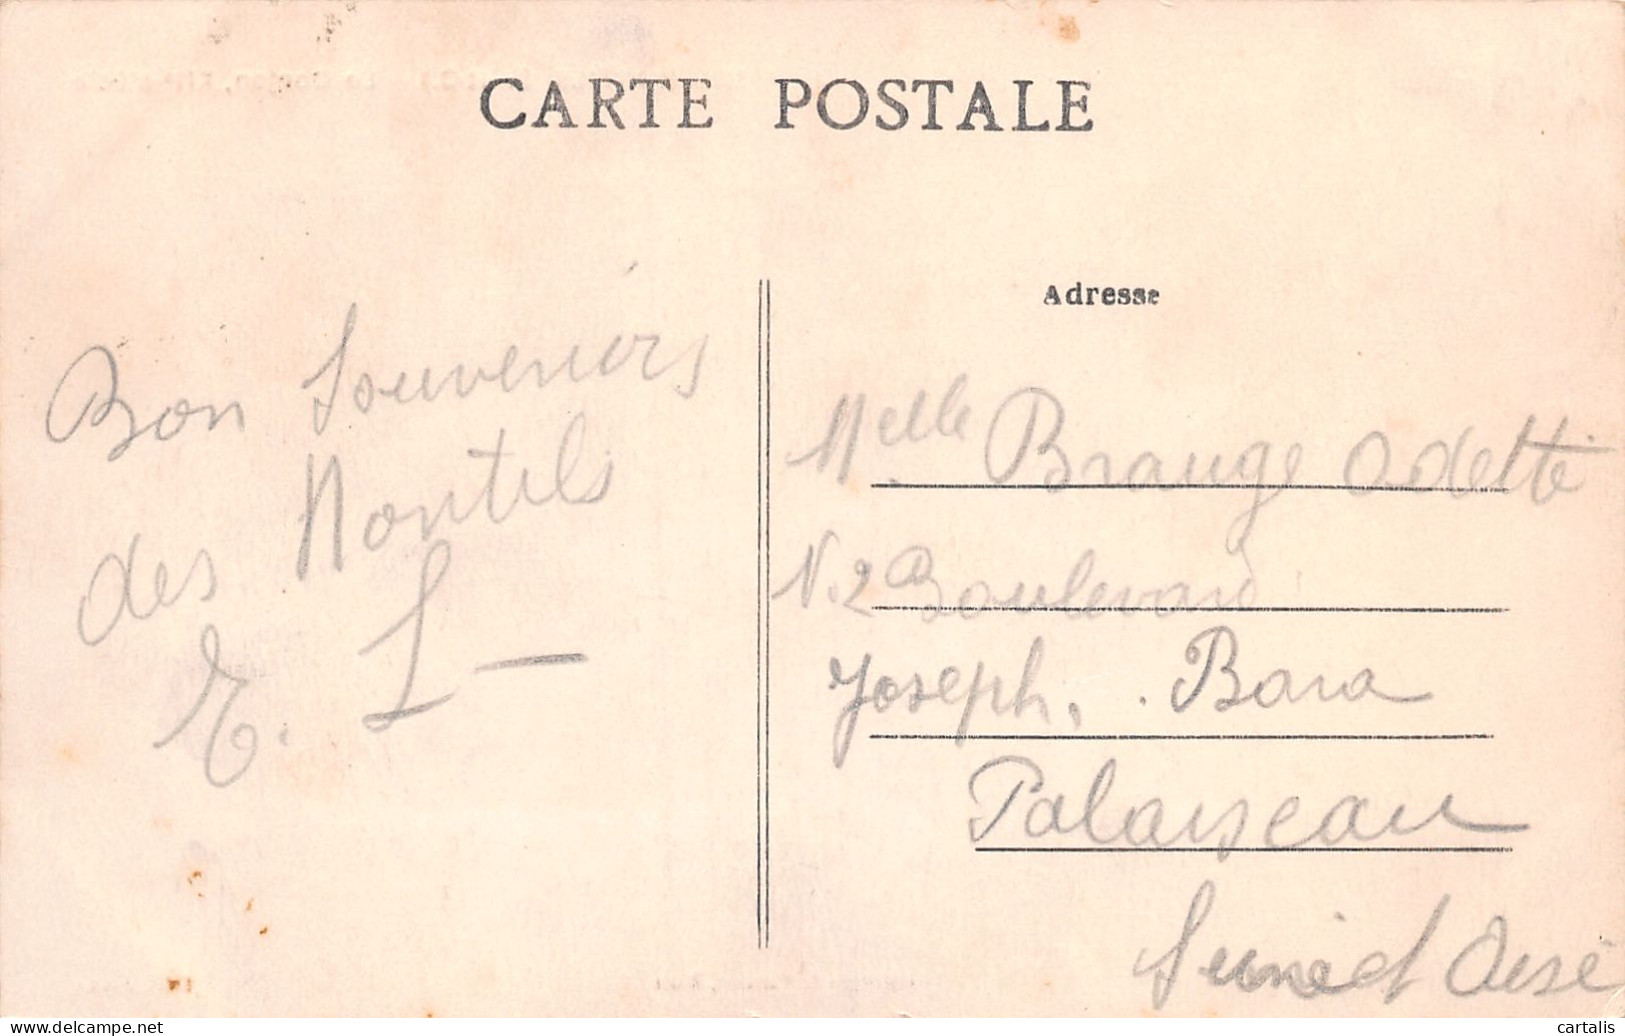 CARTE POSTALE
Bon Souveniers
des Montils
E. L —
Adresse
Melle Brauge Odette
N.2 Boulevard
Joseph. Bara
Palaiseau
Seine et Oise
cartalis
www.delcampe.net